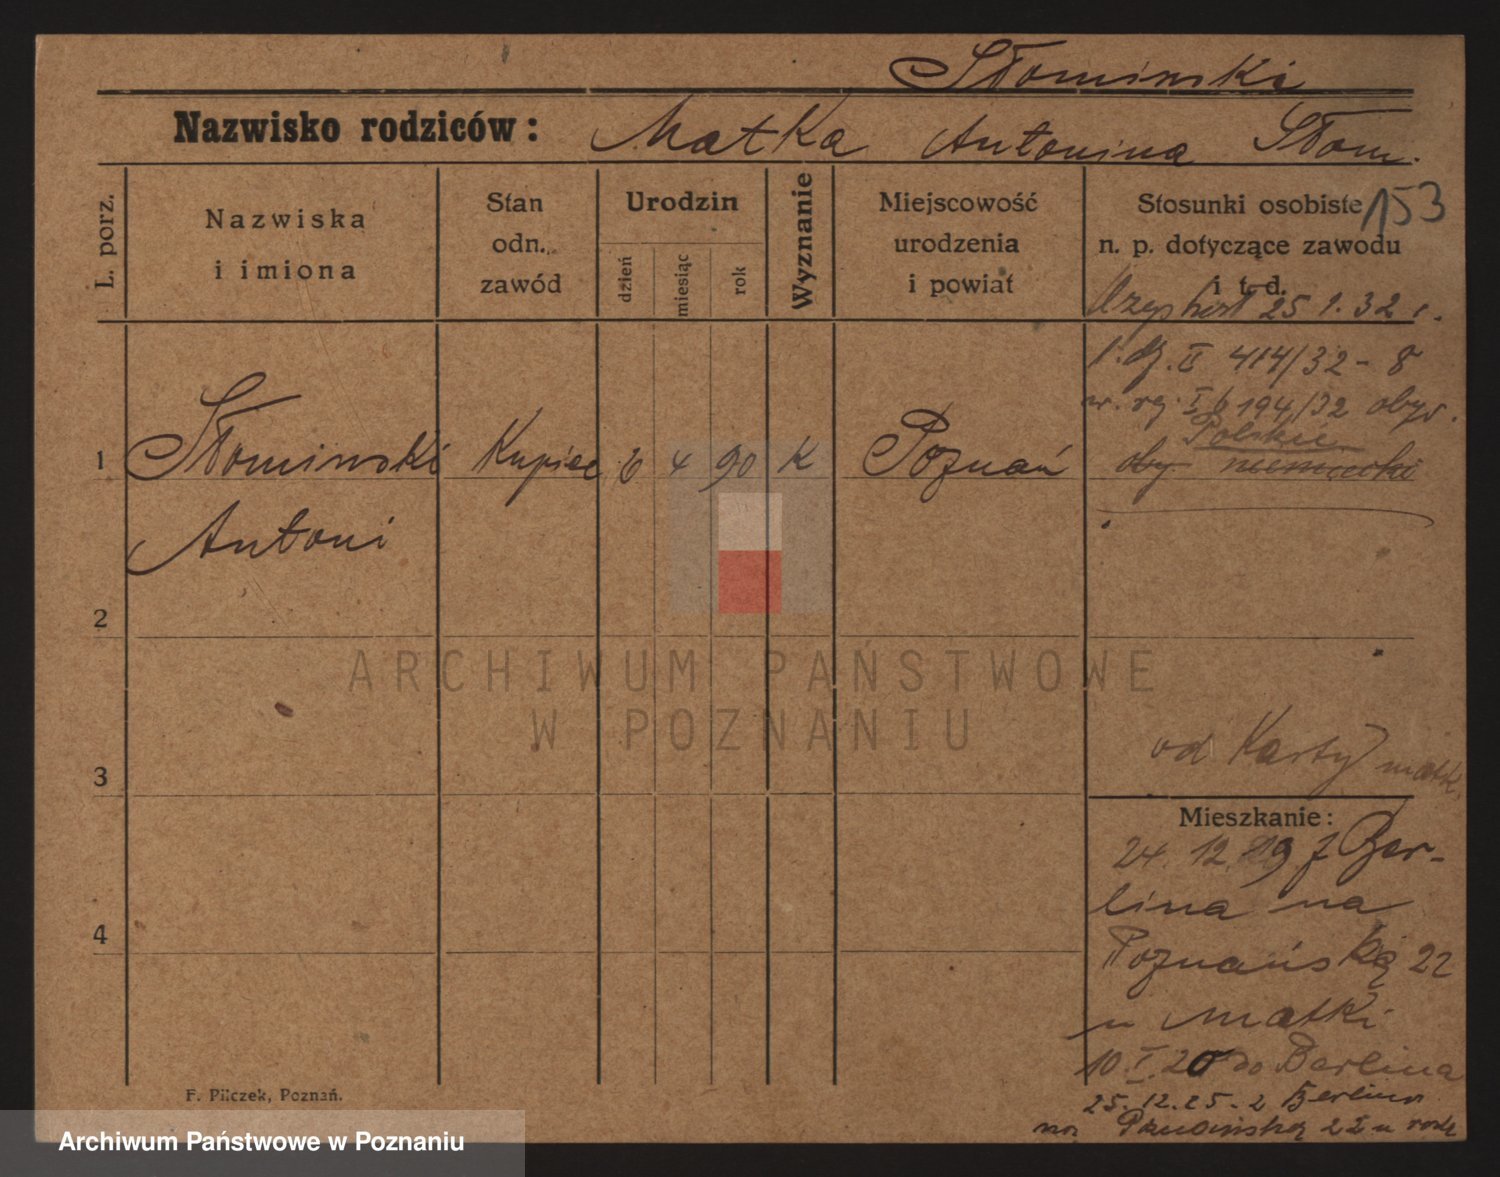 Słominski
Nazwisko rodziców: Matka Antonina Słom.
153
L. porz.
Nazwiska
i imiona
Stan
odn.
zawód
Urodzin
dzień
miesiąc
rok
Wyznanie
Miejscowość
urodzenia
i powiat
Stosunki osobiste
n. p. dotyczące zawodu
i t. d.
25 1. 32 r.
l. dz. II 414/32 - 8
nr. rej. I/b 194/32 obyw.
Polskie
oby niemiecki
1 Słominski Kupiec 6 4 90 K Poznań
Antoni
2
ARCHIWUM PAŃSTWOWE
W POZNANIU
od Karty matk.
3
Mieszkanie:
24. 12. 19 z Ber-
lina na
Poznańską 22
u matki
4
10. I. 20 do Berlina
25. 12. 25. z Berlina
na Poznańską 22 u
F. Pilczek, Poznań.
Archiwum Państwowe w Poznaniu